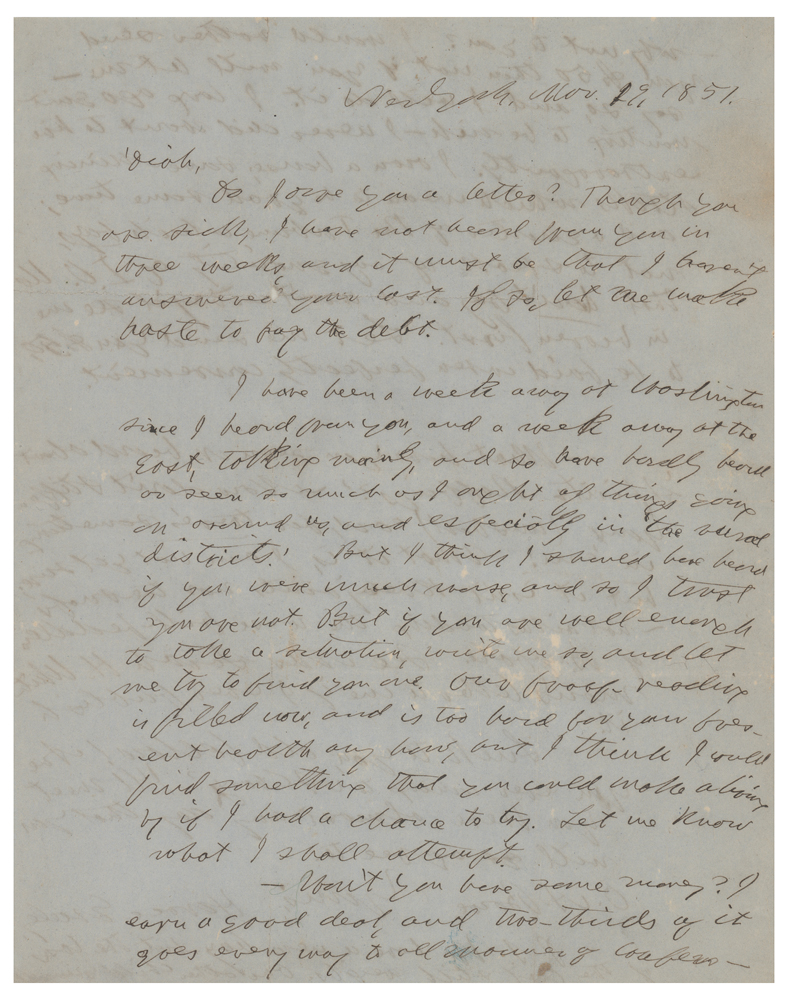 New York, Nov. 19, 1851.
'Dioh,
Do I owe you a letter? Though you
are sick, I have not heard from you in
three weeks, and it must be that I haven't
answered your last. If so, let me make
haste to pay the debt.
I have been a week away at Washington
since I heard from you, and a week away at the
East, talking mainly, and so have hardly heard
or seen so much as I ought of things going
on around us, and especially in 'the rural
districts.' But I think I should have heard
if you were much worse, and so I trust
you are not. But if you are well enough
to take a situation, write me so, and let
me try to find you one. Our proof-reading
is filled now, and is too hard for your pres-
ent health any how, but I think I would
find something that you could make a living
by if I had a chance to try. Let me know
what I shall attempt.
— Won't you have some money? I
earn a good deal, and two-thirds of it
goes every way to all manner of loafers —